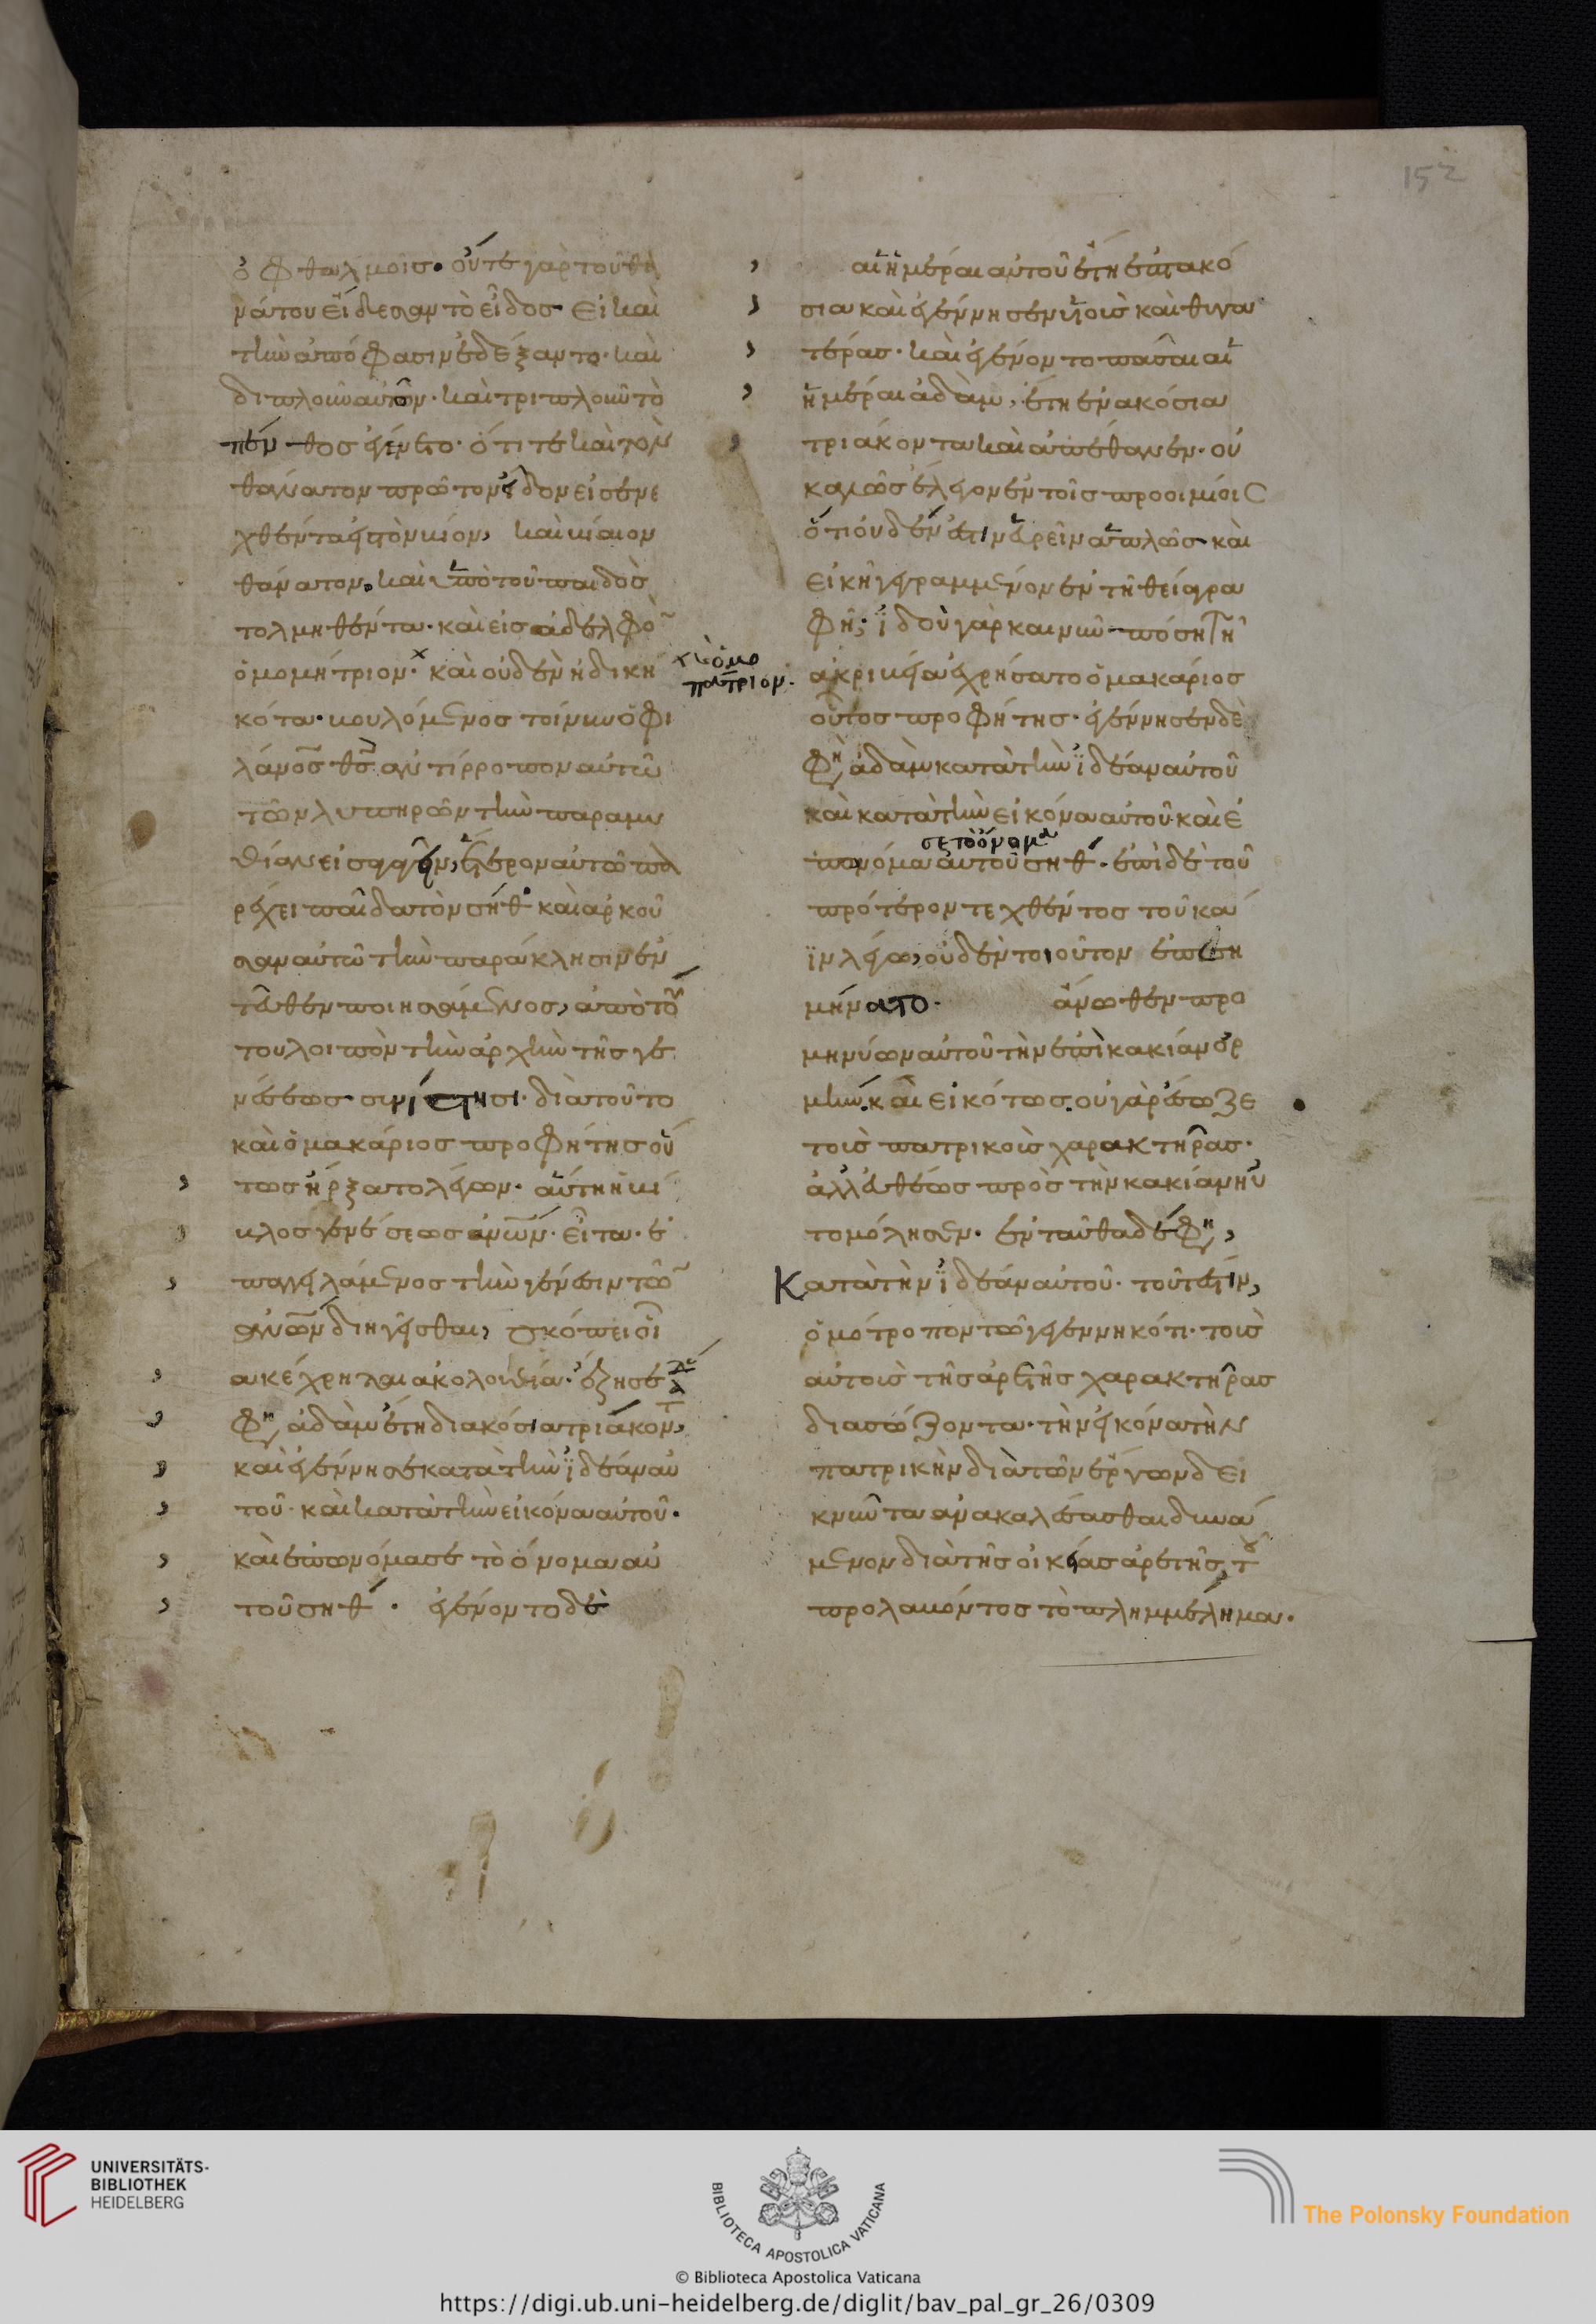 152
ὀφθαλμοῖσ· οὔτε γὰρ τοῦ θα
νάτου εἴδεσαν τὸ εἶδοσ· εἰ καὶ
τὴν ἀπόφασιν ἐδέξαντο· καὶ
διπλοῦν αὐτῶν· καὶ τριπλοῦν τὸ
πένθοσ ἐγένετο· ὅτι τε καὶ τὸν
θάνατον πρῶτον εἶδον εἰσενε
χθέντα εἰς τὸν βίον, καὶ βίαιον
θάνατον, καὶ ὑπὸ τοῦ παιδὸς
τολμηθέντα· καὶ εἰσ ἀδελφὸ̄
ὁμομήτριον· καὶ οὐδὲν ἠδικη
καὶ ὁμο
πάτριον·
κότα· βουλόμενοσ τοίνυν ὁ φι
λάνο̄σ θ̄σ ἀντίρροπον αὐτῶ
τῶν λυπηρῶν τὴν παραμυ
θίαν εἰσαγαγεῖν, ἕτερον αὐτῶ πα
ρέχει παῖδα τὸν σήθ· καὶ ἀρκοῦ
σαν αὐτῶ τὴν παράκλησιν ἐν
τεῦθεν ποιησάμενος, ἀπὸ τού
του λοιπὸν τὴν ἀρχὴν τῆς γε
νέσεως συνίστησι· διὰ τοῦτο
καὶ ὁ μακάριος προφήτης οὕ
τωσ ἤρξατο λέγων· αὕτη ἡ βί
βλοσ γενέσεωσ ἀνω̄ν· εἶτα· ἐ
παγγελάμενοσ τὴν γένεσιν τῶ̄
ἀνω̄ν διηγεῖσθαι, σκόπει οἵ
α κέχρηται ἀκολουθία· ἔζησε δὲ
φη ἀδὰμ ἔτη διακόσια τριάκοντ
καὶ ἐγέννησε κατὰ τὴν ἰδέαν αὐ
τοῦ· καὶ κατὰ τὴν εἰκόνα αὐτοῦ·
καὶ ἐπωνόμασε τὸ ὄνομα αὐ
τοῦ σήθ· ἐγένοντο δὲ
αἱ ἡμέραι αὐτοῦ ἔτη ἑπτακό
σια καὶ ἐγέννησεν υἱοὺς καὶ θυγα
τέρασ· καὶ ἐγένοντο πᾶσαι αἱ
ἡμέραι ἀδὰμ, ἔτη ἐνακόσια
τριάκοντα καὶ ἀπέθανεν· οὐ
καλῶς ἔλεγον ἐν τοῖς προοιμίοις
ὅτι οὐδέν ἐστιν εὑρεῖν ἁπλῶσ καὶ
εἰκῆ γεγραμμένον ἐν τῆ θεία γρα
φῆ; ἰδοὺ γὰρ καὶ νῦν πόση τῆ
ἀκριβεία ἐχρήσατο ὁ μακάριος
οὗτος προφήτησ· ἐγέννησεν δὲ
φη ἀδὰμ κατὰ τὴν ἰδέαν αὐτοῦ
καὶ κατὰ τὴν εἰκόνα αὐτοῦ καὶ ἐ
σε τὸ ὄνομα
πωνόμα αὐτοῦ σήθ· ἐπὶ δὲ τοῦ
πρότερον τεχθέντοσ τοῦ κά
ϊν λέγω, οὐδὲν τοιοῦτον ἐπεση
μήνατο· ἄνωθεν προ
μηνύων αὐτοῦ τὴν ἐπὶ κακίαν ὁρ
μὴν· καὶ εἰκότως· οὐ γὰρ ἔσωζε
τοὺς πατρικοὺς χαρακτῆρας·
ἀλλ εὐθέως πρὸς τὴν κακίαν ηὐ
τομόλησεν· ἐνταῦθα δέ φη,
Κατὰ τὴν ἰδέαν αὐτοῦ· τοῦτέστιν,
ὁμότροπον τῶ γεγεννηκότι· τοὺς
αὐτοὺς τῆς ἀρετῆς χαρακτῆρας
διασώζοντα· τὴν εἰκόνα τὴν
πατρικὴν διὰ τῶν ἔργων δει
κνῦντα ἀνακαλέσασθαι δυνά
μενον διὰ τῆς οἰκείας ἀρετῆς, τοῦ
προλαβόντος τὸ πλημμέλημα·
UNIVERSITÄTS-
BIBLIOTHEK
HEIDELBERG
BIBLIOTECA APOSTOLICA VATICANA
The Polonsky Foundation
© Biblioteca Apostolica Vaticana
https://digi.ub.uni-heidelberg.de/diglit/bav_pal_gr_26/0309